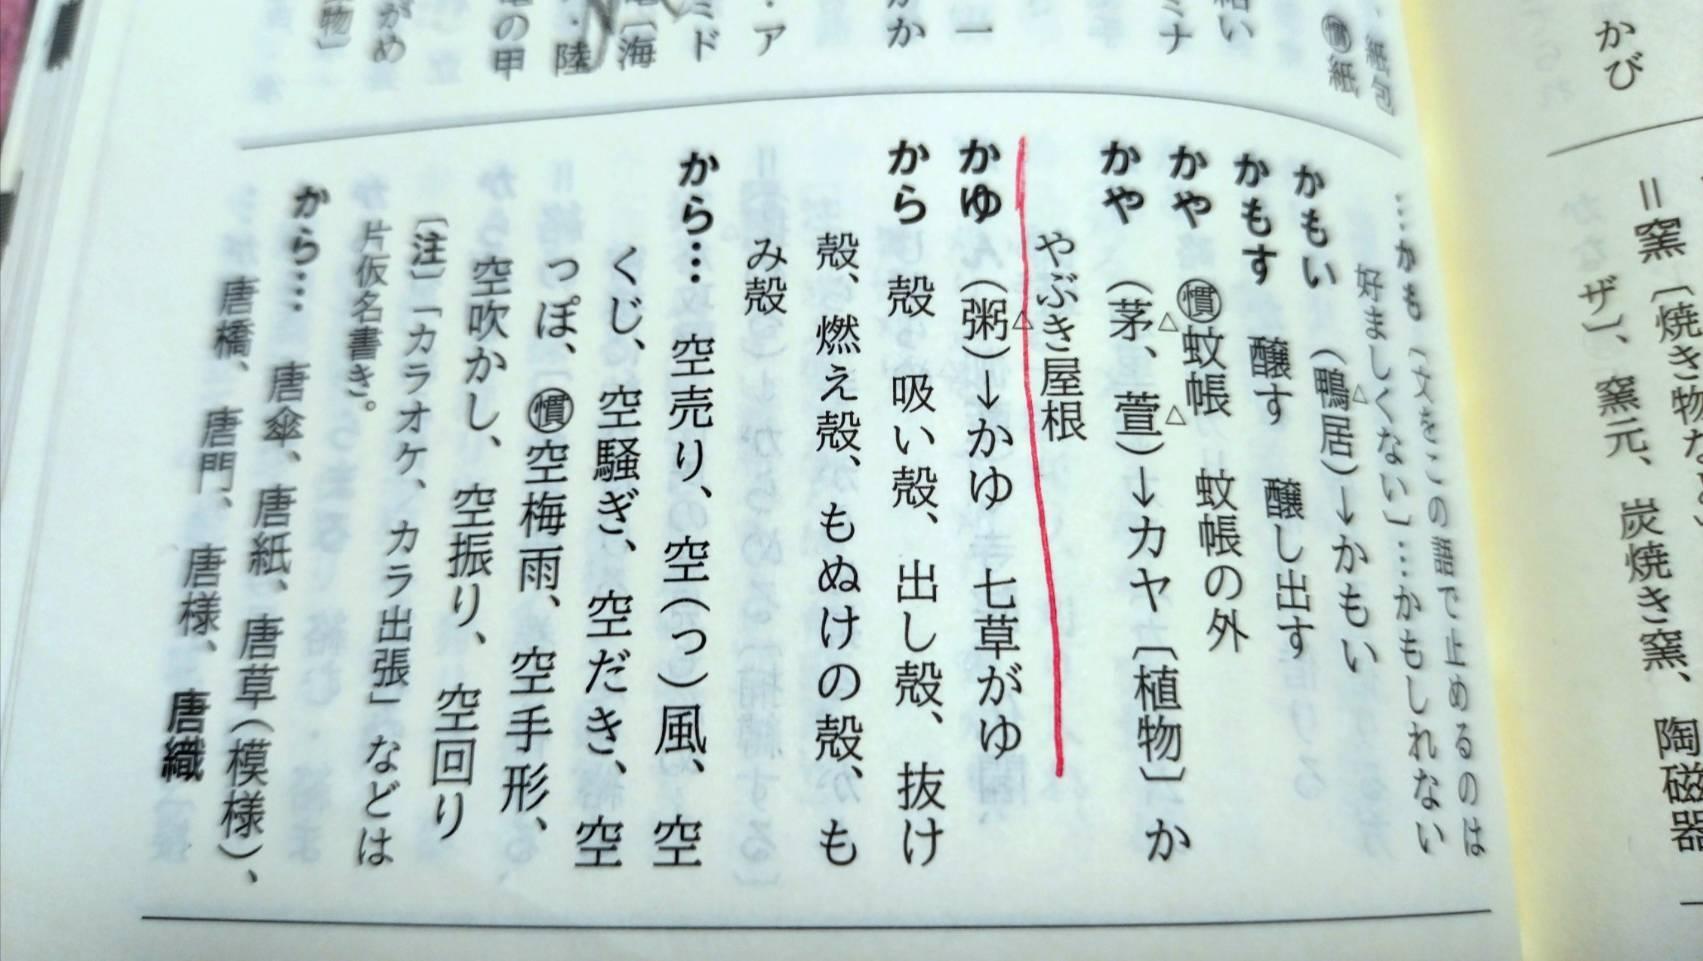 かび
＝窯〔焼き物な
ザ〕、窯元、炭焼き窯、陶磁器
・紙包
㊙紙
ミナ
一
かか
・ア
ミド
〔海
・陸
の甲
がめ
物〕
…かも〔文をこの語で止めるのは
好ましくない〕…かもしれない
かもい（鴨△居）→かもい
かもす　醸す　醸し出す
かや　㊙蚊帳　蚊帳の外
かや（茅△、萱△）→カヤ〔植物〕か
やぶき屋根
かゆ（粥△）→かゆ　七草がゆ
から　殻　吸い殻、出し殻、抜け
殻、燃え殻、もぬけの殻、も
み殻
から…　空売り、空（っ）風、空
くじ、空騒ぎ、空だき、空
っぽ、㊙空梅雨、空手形、
空吹かし、空振り、空回り
〔注〕「カラオケ、カラ出張」などは
片仮名書き。
から…　唐傘、唐紙、唐草（模様）、
唐橋、唐門、唐様、唐織